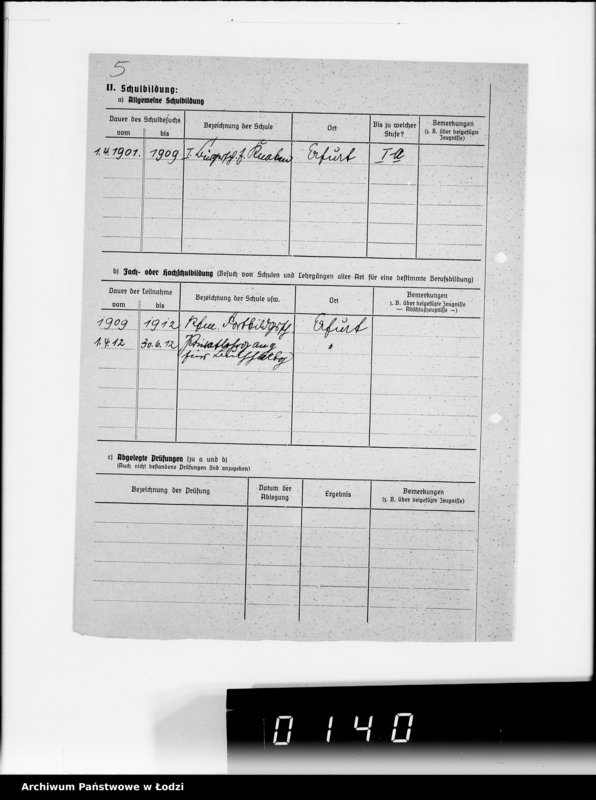 5
II. Schulbildung:
a) Allgemeine Schulbildung
Dauer des Schulbesuchs
vom
bis
Bezeichnung der Schule
Ort
Bis zu welcher
Stufe?
Bemerkungen
(z. B. über beigefügte
Zeugnisse)
1.4.1901. 1909 I. Bürgersch. f. Knaben Erfurt I a
b) Fach- oder Hochschulbildung (Besuch von Schulen und Lehrgängen aller Art für eine bestimmte Berufsbildung)
Dauer der Teilnahme
vom
bis
Bezeichnung der Schule usw.
Ort
Bemerkungen
z. B. über beigefügte Zeugnisse
— Abschlußzeugnisse —)
1909 1912 Kfm. Fortbildgssch Erfurt
1.4.12 30.6.12 Privatlehrgang "
c) Abgelegte Prüfungen (zu a und b)
(Auch nicht bestandene Prüfungen sind anzugeben)
Bezeichnung der Prüfung
Datum der
Ablegung
Ergebnis
Bemerkungen
(z. B. über beigefügte Zeugnisse)
0140
Archiwum Państwowe w Łodzi